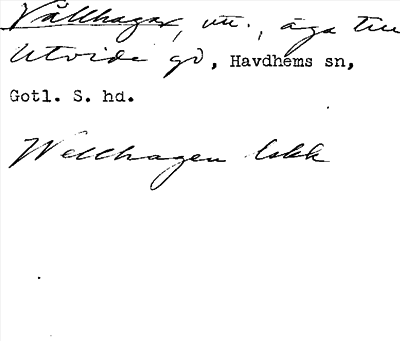 Vällhagar, utt., äga till
Utvide gd, Havdhems sn,
Gotl. S. hd.
Wellhagen lskk